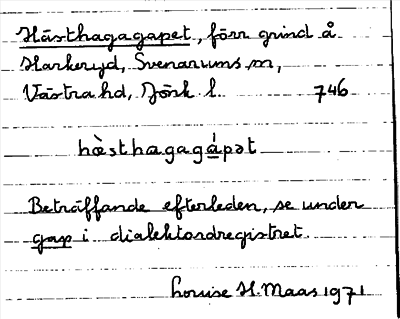 Hästhagagapet, förr grind å
Harkeryd, Svenarums sn,
Västra hd, Jönk l. 746
hæ̀sthagagá̱pət
Beträffande efterleden, se under
gap i dialektordregistret.
Louise H. Maas 1971